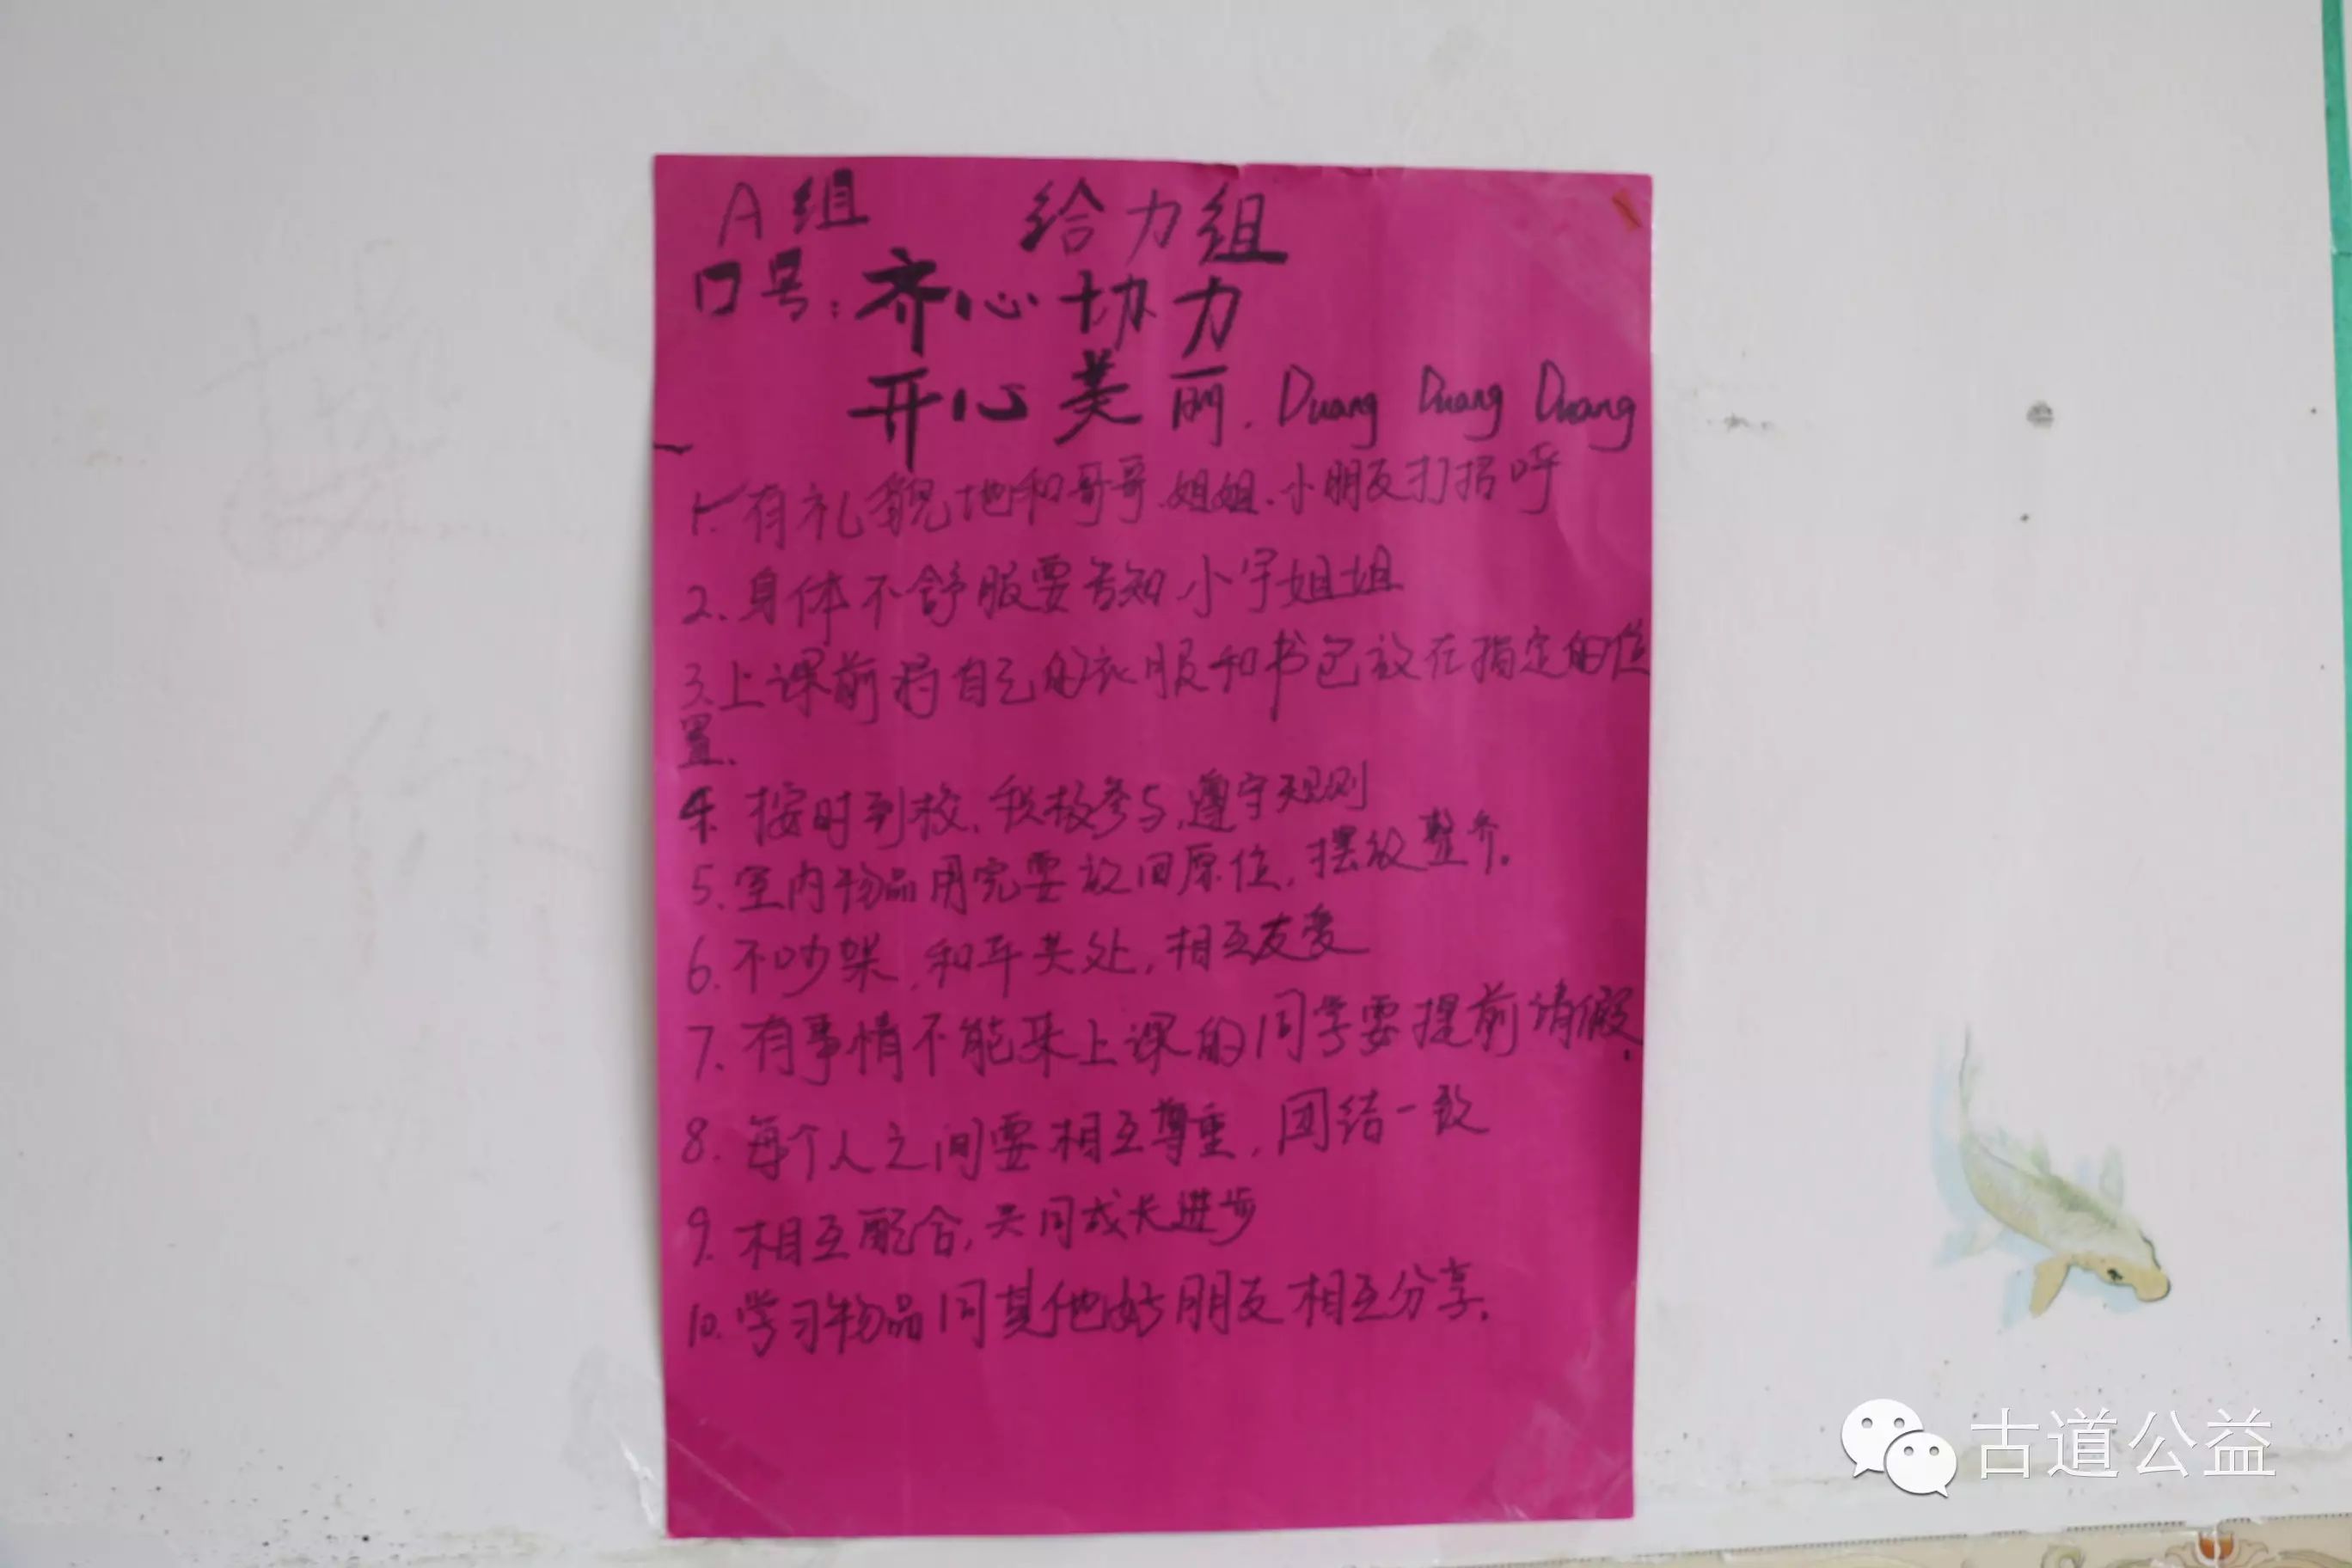 A组 给力组
口号：齐心协力
开心美丽. Duang Duang Duang
1. 有礼貌地和哥哥、姐姐、小朋友打招呼
2. 身体不舒服要告知小宇姐姐
3. 上课前将自己的衣服和书包放在指定的位
置.
4. 按时到校，积极参与，遵守规则
5. 室内物品用完要放回原位，摆放整齐。
6. 不吵架，和平共处，相互友爱
7. 有事情不能来上课的同学要提前请假.
8. 每个人之间要相互尊重，团结一致
9. 相互配合，共同成长进步
10. 学习物品同其他好朋友相互分享.
古道公益